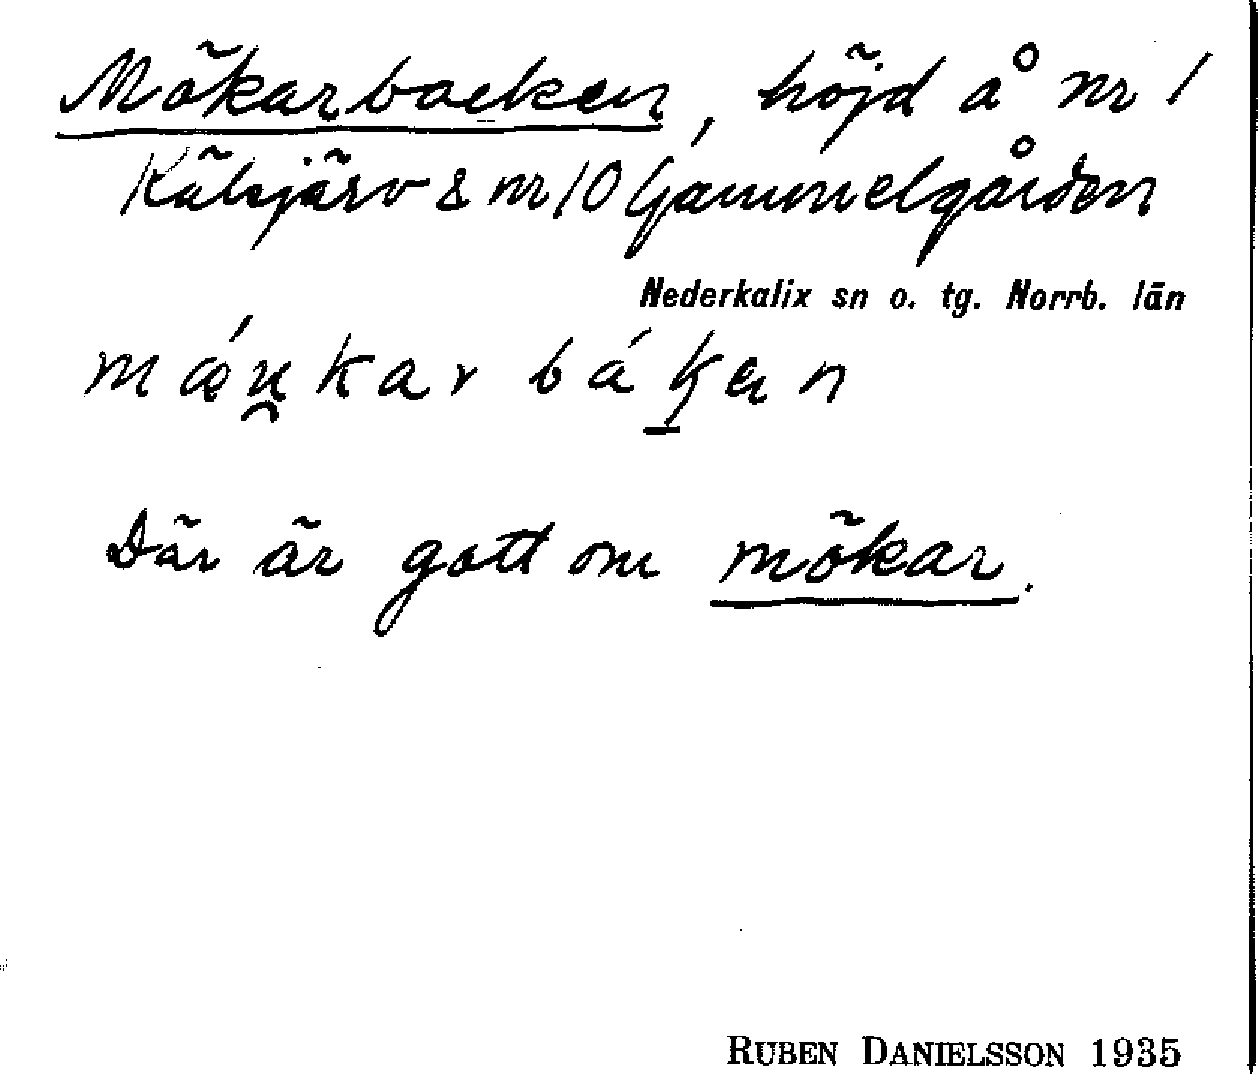 Mökarbacken, höjd å nr 1
Kälsjärv & nr 10 Gammelgården
Nederkalix sn o. tg. Norrb. län
mǽu̯kar báken
Där är gott om mökar.
RUBEN DANIELSSON 1935